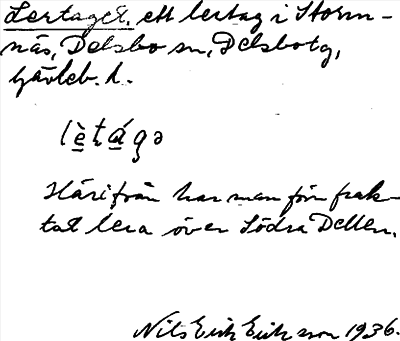 Lertaget, ett lertag i Storm-
näs, Delsbo sn, Delsbo tg,
Gävleb. l.
lètágə
Härifrån har man förr frak-
tat lera över Södra Dellen.
Nils Erik Eriksson 1936.